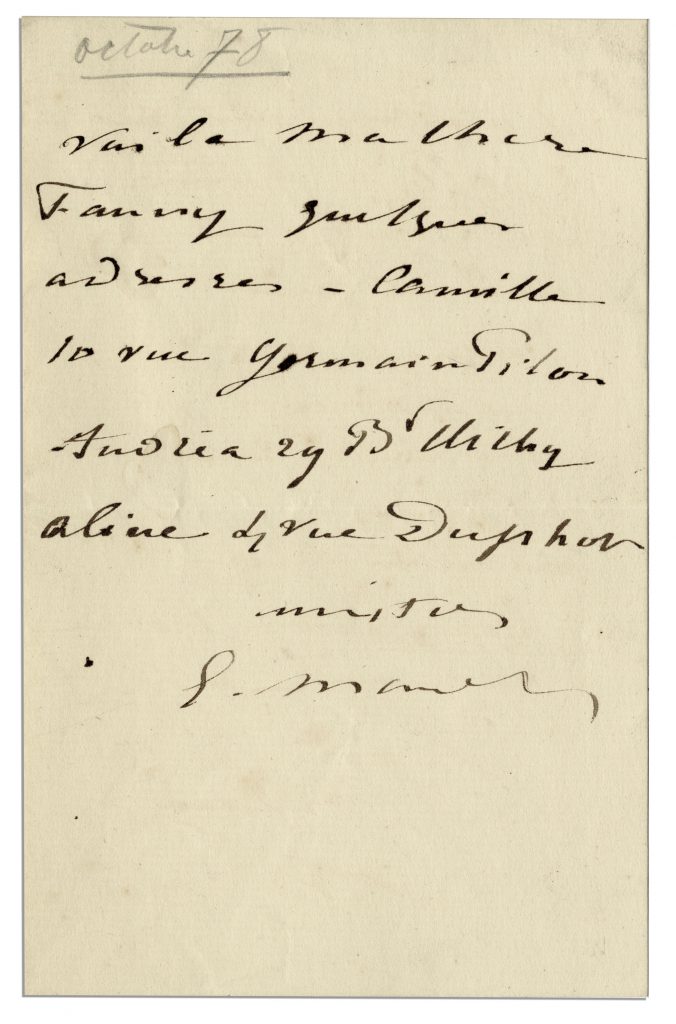 octobre 78
voila ma chere
Fanny quelques
adresses - Camille
10 rue Germain Pilon
Andréa 29 Bd Clichy
aline 4 rue Duphot
E. Manet